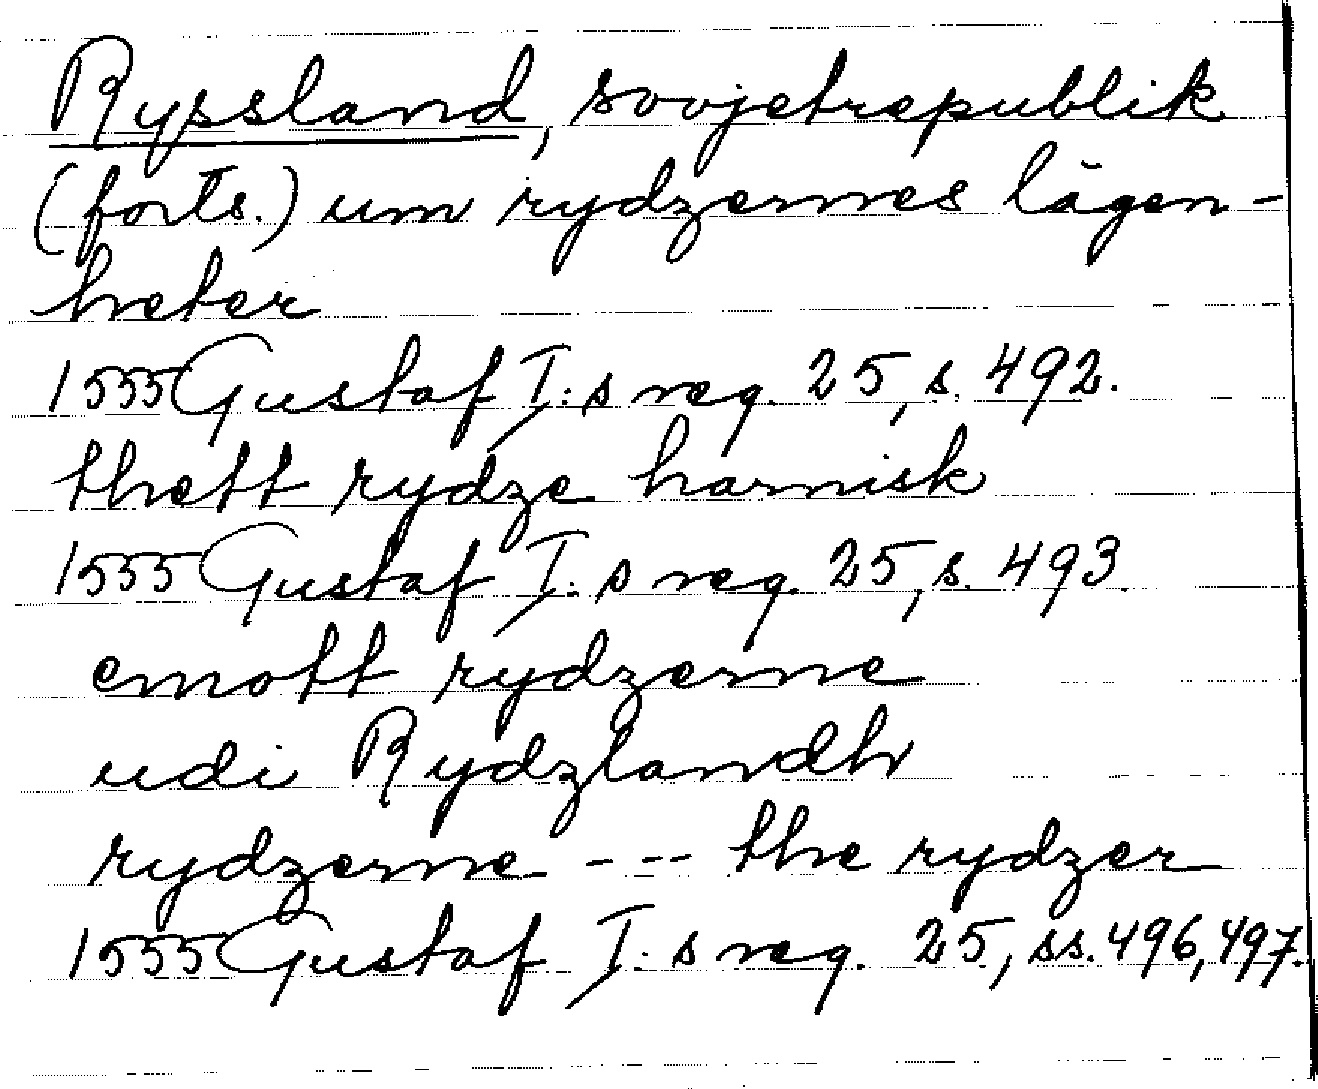 Ryssland, sovjetrepublik
(forts.) um rydzernes lägen-
heter
1555 Gustaf I:s reg. 25, s. 492.
thett rydze harnisk
1555 Gustaf I:s reg. 25, s. 493.
emott rydzerne
udi Rydzlandh
rydzerne --- the rydzer
1555 Gustaf I:s reg. 25, ss. 496, 497.